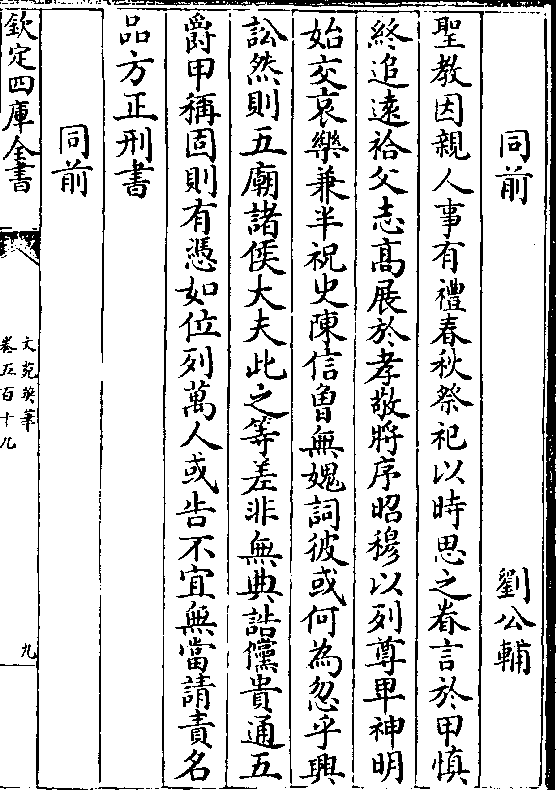 同前 劉公輔
聖教因親人事有禮春秋祭祀以時思之眷言於甲慎
終追遠祫父志高展於孝敬將序昭穆以列尊卑神明
始交哀樂兼半祝史陳信曾無媿詞彼或何為忽乎興
訟然則五廟諸侯大夫此之等差非無典誥儻貴通五
爵甲稱固則有憑如位列萬人或告不宜無當請責名
品方正刑書
同前
欽定四庫全書
文苑英華
卷五百十九
九